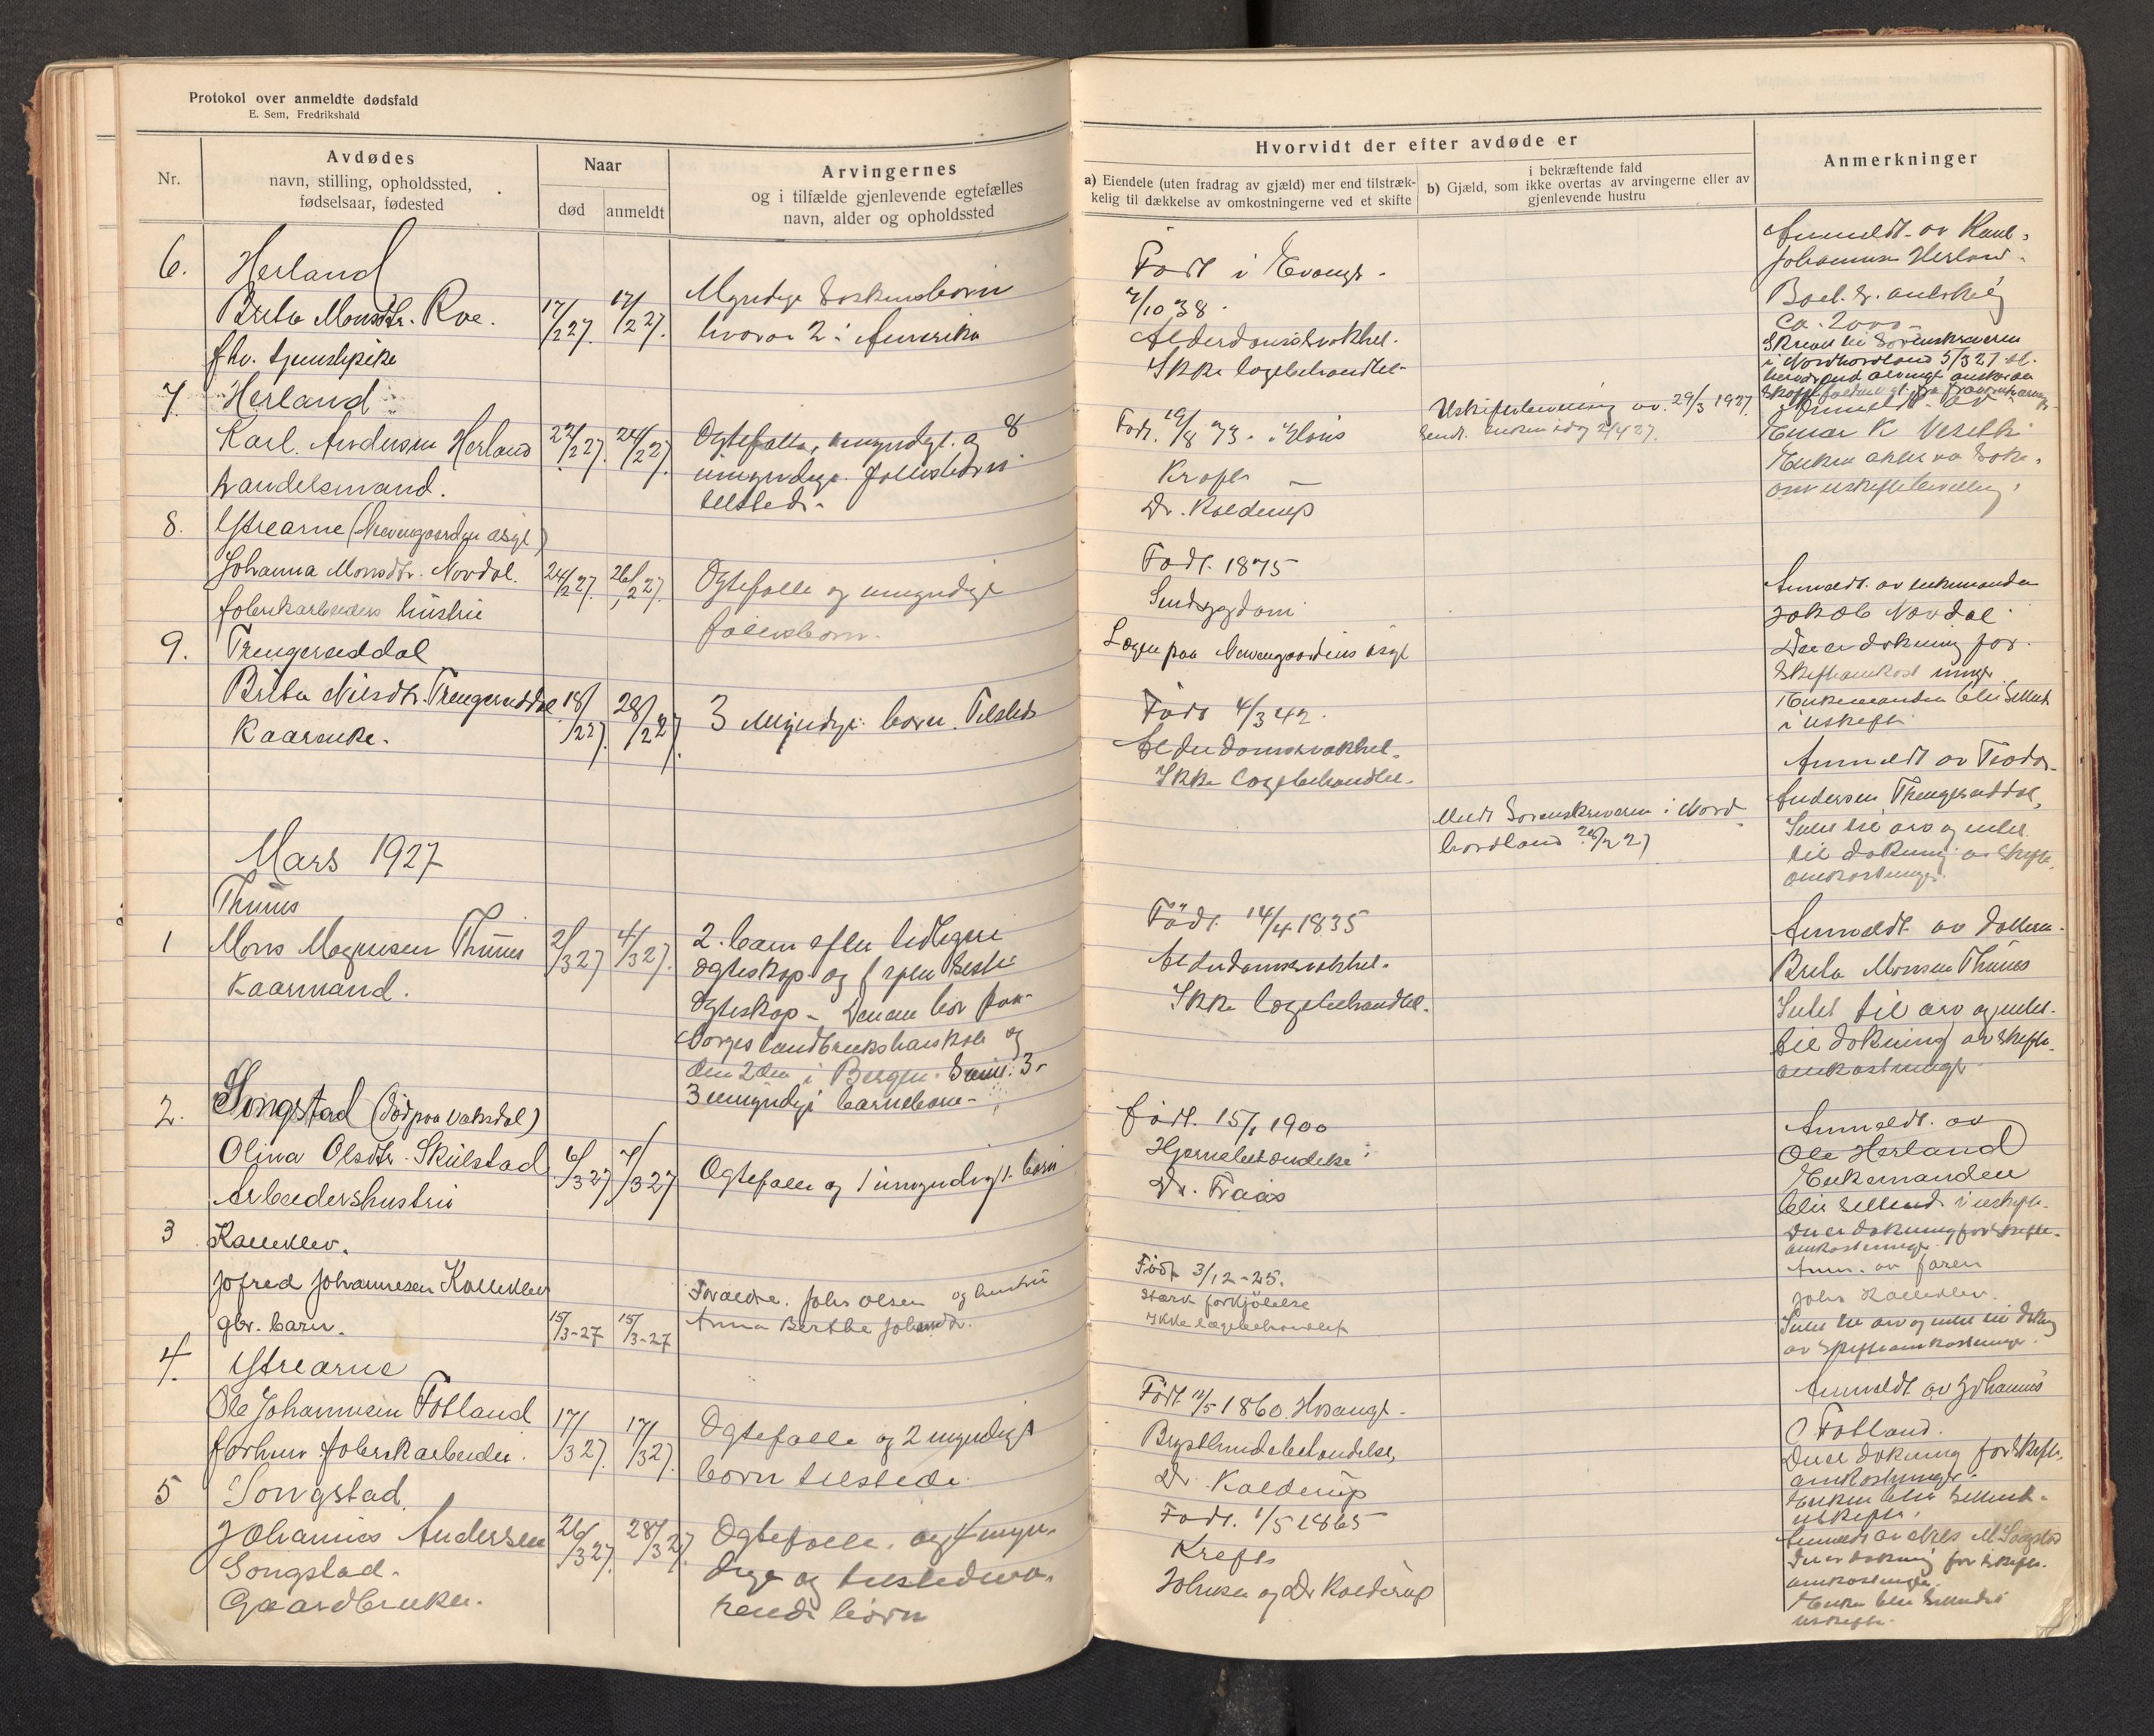 Protokol over anmeldte dødsfald
E. Sem, Fredrikshald
Nr.
Avdødes
navn, stilling, opholdssted,
fødselsaar, fødested
Naar
død
anmeldt
Arvingernes
og i tilfælde gjenlevende egtefælles
navn, alder og opholdssted
6.
Herland
Brita Monsdtr. Roe.
fhv. tjenstepike
17/2 27.
17/2 27.
Myndige Søskensbørn
hvorav 2 i Amerika
7
Herland
Karl Andersen Herland
handelsmand.
22/2 27.
24/2 27.
Ogtefælle, myndige og 8
umyndige fællesbørn
tilstede.
8.
Ytrearne (Neevengaardens asyl)
Johanna Monsdtr. Nordal.
fabrikarbeiders hustru
24/2 27.
26/2 27.
Ogtefælle og umyndige
fællesbørn.
9.
Trengereiddal
Brita Nilsdtr. Trengereiddal
Kaarenke.
18/2 27.
28/2 27.
3 myndige børn. Tilstede
Mars 1927
Thunes
1
Mons Magnesen Thunes
Kaarmand.
2/3 27
4/3 27.
2. barn efter tidligere
ogteskap og
ogteskap - Denene bor paa
Norges landbrukshøiskole og
den 2den i Bergen. Samt 3.
3 umyndige barnebørn.
2.
Songstad (død paa Vaksdal)
Olina Olsdtr. Skulstad
Arbeidershustru
6/3 27
7/3 27
Ogtefælle og 1 umyndigt barn
3
Kallekleiv.
Jofred Johannesen Kallekleiv
gbr. barn.
15/3-27
15/3-27
Foraeldre. Johs Olsen og hustru
Anna Berthe Johansdr.
4.
Ytrearne
Ole Johannesen Fotland
forhenv. fabrikarbeider.
17/3 27.
17/3 27.
Ogtefælle og 2 myndige
børn tilstede.
5
Songstad.
Johannes Andersen
Songstad.
Gaardbruker.
26/3 27.
28/3 27.
Ogtefælle og 4 myn-
dige og tilstedevæ-
rende børn
Hvorvidt der efter avdøde er
a) Eiendele (uten fradrag av gjæld) mer end tilstræk-
kelig til dækkelse av omkostningerne ved et skifte
i bekræftende fald
b) Gjæld, som ikke overtas av arvingerne eller av
gjenlevende hustru
Anmerkninger
Født i Evanger.
7/10 38.
Alderdomssvakhet.
Ikke lægebehandlet.
Anmeldt av Karl
Johannesen Herland.
ca. 2000
Skrevet til Sorenskriveren
i Nordhordland 5/3 27
Født 19/8 73.
Kræft
Dr. Kolderup
Uskiftebevilling av 29/3 1927.
Sendt enken idag 2/4 27.
Anmeldt av
Einar K Veseth
Enken akter at søke
om uskiftebevilling.
Født. 1875
Sindsygdom
Lægen paa Neevengaardens asyl
Anmeldt av enkemanden
Jakob Nordal
Der er dækning for
skifteomkostninger
Enkemanden blir sittende
i uskifte
Født 4/3 42.
Alderdomssvakhet.
Ikke lægebehandlet.
Medt Sorenskriveren i Nord-
hordland 28/2 27
Anmeldt av Teodor
Andersen Trengereiddal,
Intet til arv og intet
til dækning av skifte-
omkostninger.
Født. 14/4 1835
Alderdomssvakhet.
Ikke lægebehandlet.
Anmeldt av datteren
Brita Monsen Thunes
Intet til arv og intet
til dækning av skifte-
omkostninger.
født. 15/1 1900
Hjernebetændelse
Dr. Fraas
Anmeldt. av
Ole Herland
Enkemanden
blir sittende i uskifte.
Der er dækning for skifte-
omkostninger.
Født 3/12-25.
Stærk forkjølelse
Ikke lægebehandlet
Anm. av faren
Johs Kallekleiv.
Intet til arv og intet til dækning
av skifteomkostninger.
Født 11/5 1860. Hosanger.
Brysthindebetændelse,
Dr. Kolderup
Anmeldt av Johannes
O Fotland.
Der er dækning for skifte-
omkostninger.
Enken blir sittende
uskifte.
Født. 1/5 1865
Kræft
Johnsen og Dr Kolderup
Anmeldt av Nels M Songstad
Der er dækning for skifte-
omkostninger.
Enken blir sittende i
uskifte.